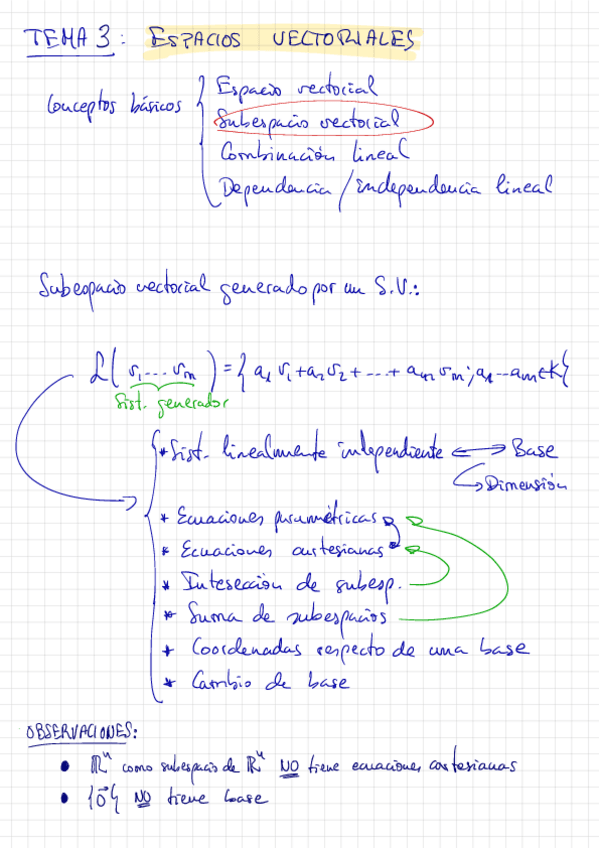 TEMA 3: ESPACIOS VECTORIALES
Conceptos básicos { Espacio vectorial
Subespacio vectorial
Combinación lineal
Dependencia / independencia lineal
Subespacio vectorial generado por un S.V.:
L( v₁ ... vₘ ) = { a₁ v₁ + a₂ v₂ + ... + aₘ vₘ ; a₁ ... aₘ ∈ K }
Sist. generador
* Sist. linealmente independiente ↔ Base
↳ Dimensión
* Ecuaciones paramétricas
* Ecuaciones cartesianas
* Intesección de subesp.
* Suma de subespacios
* Coordenadas respecto de una base
* Cambio de base
OBSERVACIONES:
• ℝⁿ como subespacio de ℝⁿ NO tiene ecuaciones cartesianas
• {0⃗} NO tiene base